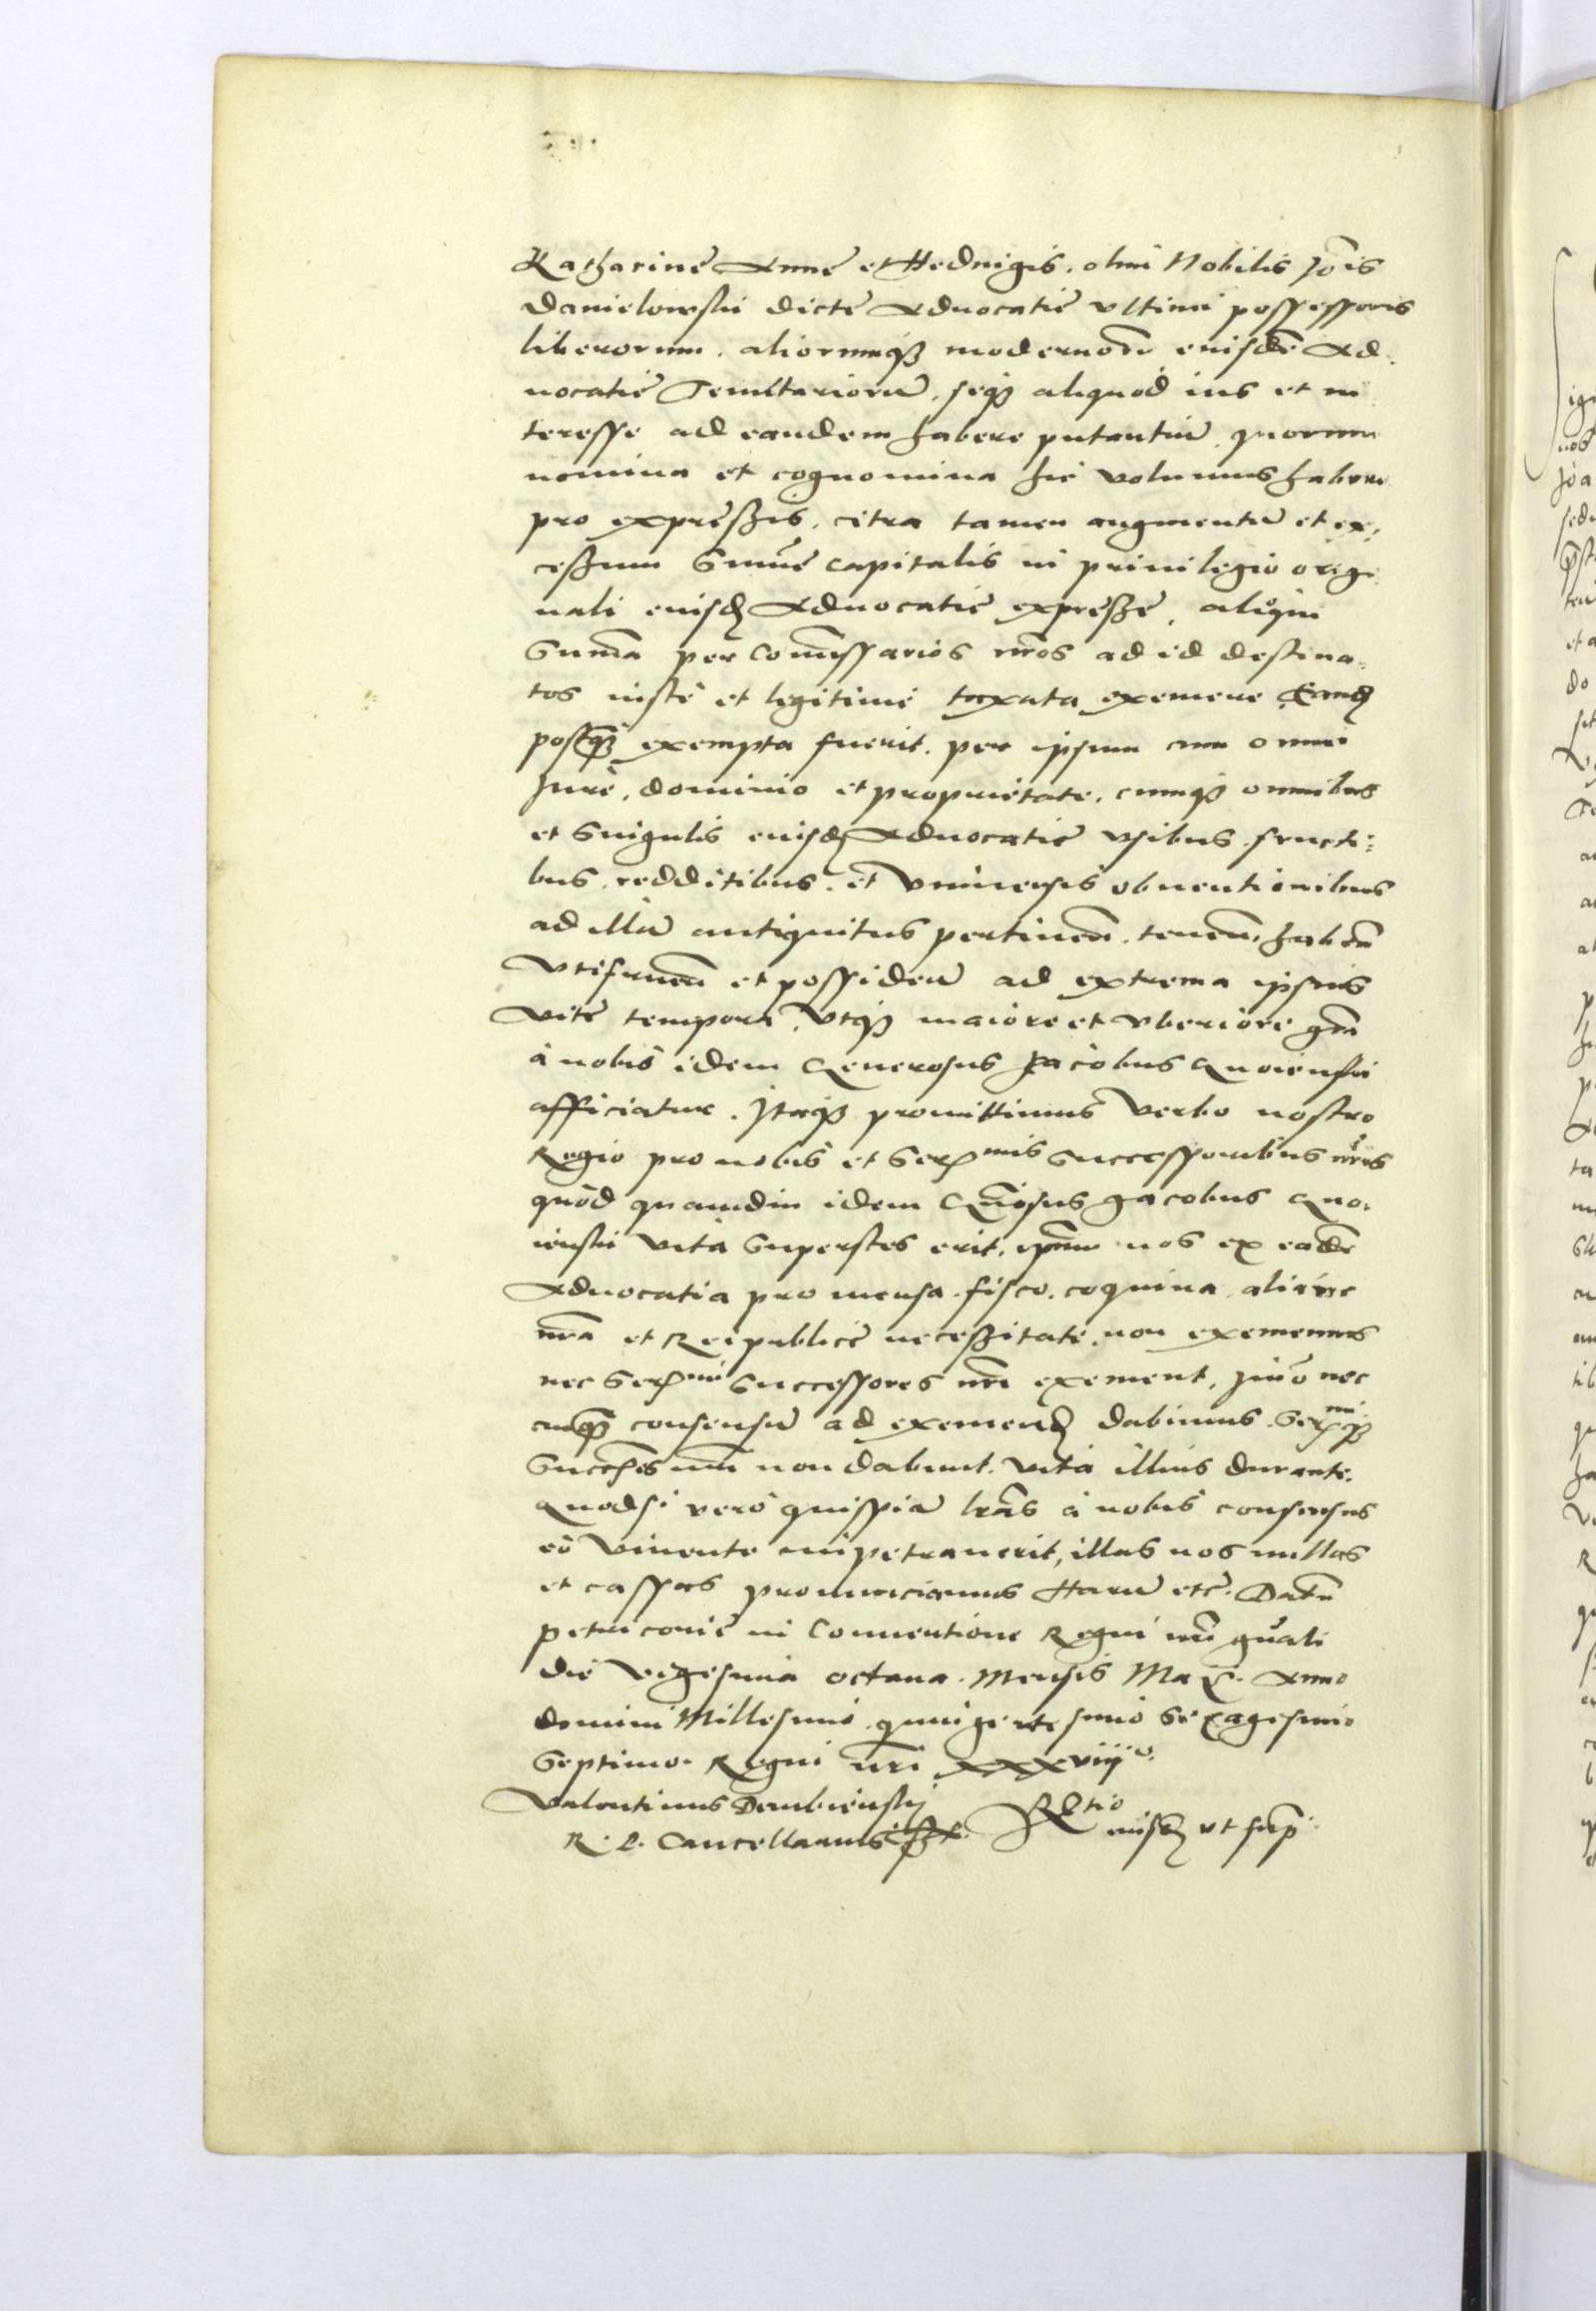 Katharinę Annę et Heduigis. olim Nobilis Jois
Danielowskii dictę Aduocatię vltimi possessoris
liberorum. aliorumq3 modernor. eiusdē Ad.
uocatię Tenutariorū. seq3 aliquod ius et in
teresse ad eandem habere putantiū. quorum
nomina et cognomina hic volumus habere
pro expressis. citra tamen augmentū et ex:
cessum Summę capitalis in priuilegio origi
nali eiusd. Aduocatię expressę, alioqui
Summa per Commissarios nros ad id destina=
tos iustè et legitimè taxata exemere. Eand.
postq3 exempta fuerit. per ipsum cum omni
Jure, dominio et proprietate, cumq3 omnibus
et Singulis eiusd. Aduocatię vsibus. fructi:
bus. redditibus. et Vniuersis obuentionibus
ad illā antiquitus pertinen. tenen. haben
Vtifruen et possiden ad extrema ipsius
Vitę tempora. Vtq3 maiore et vberiore gra
à nobis idem Generosus Jacobus Gnoienski
afficiatur. Itaq3 promittimus Verbo nostro
Regio pro nobis et Ser.mis Successoribus nris
quòd quamdiu idem Gnosus Jacobus Gno.
ienski Vita Superstes erit, ipsum nos ex eadē
Aduocatia pro mensa. fisco. coquina. aliaue
nra et Reipublicę necessitate. non exememus
nec Ser.mi Successores nri exement, Imò nec
cuiq consensū ad exemend. dabimus. Ser.miq3
Succres nri non dabunt. Vita illius durante.
Quodsi verò quispiā lras à nobis consensus
eò Viuente impetrauerit, illas nos nullas
et cassas pronunciamus Harū etc. Datū
Petricouię in Conuentione Regni nri gnali
die Vigesima octaua. Mensis Maii. Anno
domini Millesimo quingentesimo Sexagesimo
Septimo. Regni nri xxxviijo.
Valentinus Dembienskij
R. P. Cancellarius sst. Rtio eiusd. vt supra